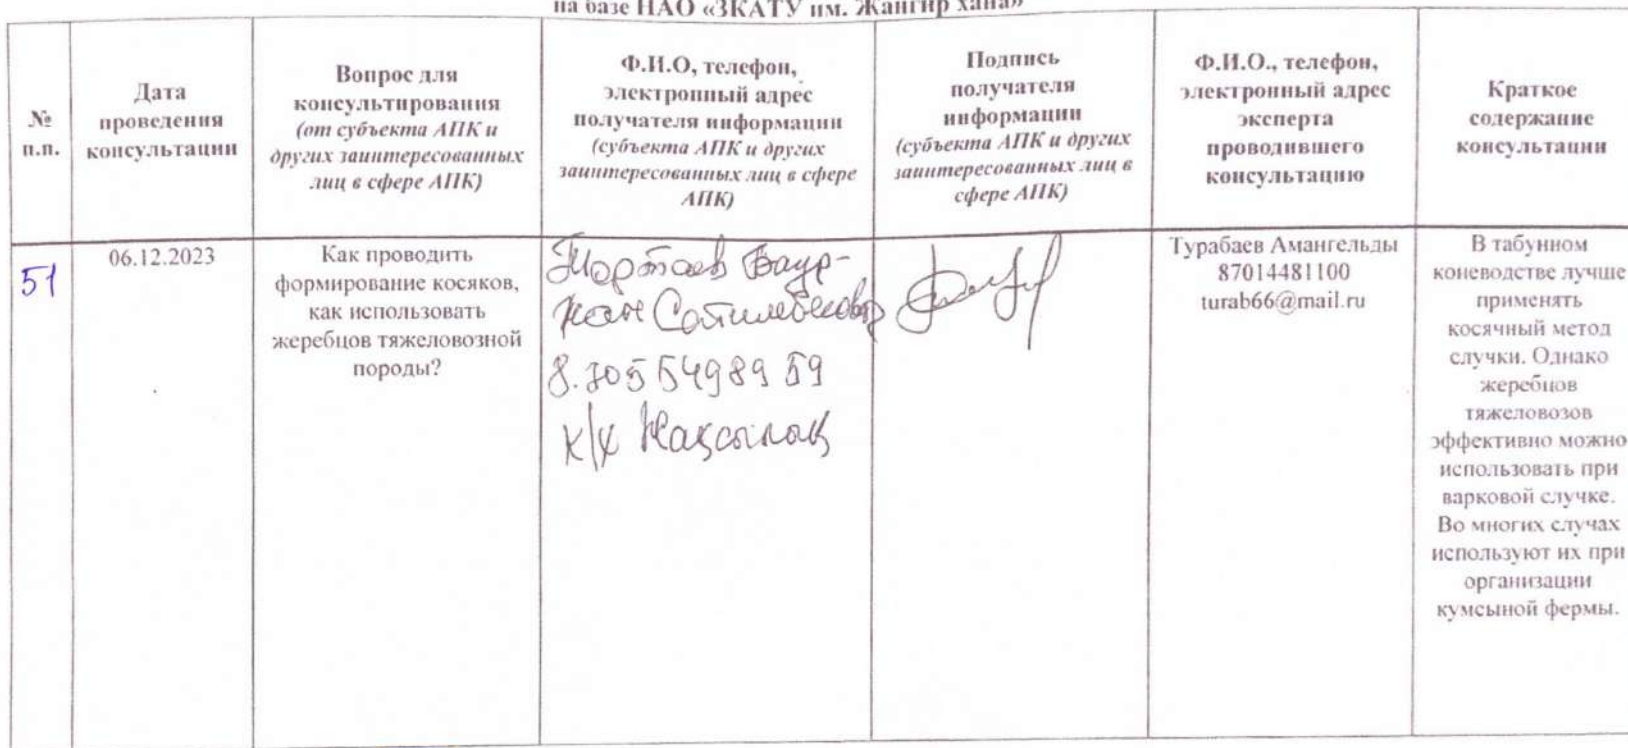 на базе НАО «ЗКАТУ им. Жангир хана»
№
п.п.
Дата
проведения
консультации
Вопрос для
консультирования
(от субъекта АПК и
других заинтересованных
лиц в сфере АПК)
Ф.И.О, телефон,
электронный адрес
получателя информации
(субъекта АПК и других
заинтересованных лиц в сфере
АПК)
Подпись
получателя
информации
(субъекта АПК и других
заинтересованных лиц в
сфере АПК)
Ф.И.О., телефон,
электронный адрес
эксперта
проводившего
консультацию
Краткое
содержание
консультации
51
06.12.2023
Как проводить
формирование косяков,
как использовать
жеребцов тяжеловозной
породы?
Баур-
жан
8.705 549 89 59
к/х Жақсылық
Турабаев Амангельды
87014481100
turab66@mail.ru
В табунном
коневодстве лучше
применять
косячный метод
случки. Однако
жеребцов
тяжеловозов
эффективно можно
использовать при
варковой случке.
Во многих случах
используют их при
организации
кумсыной фермы.